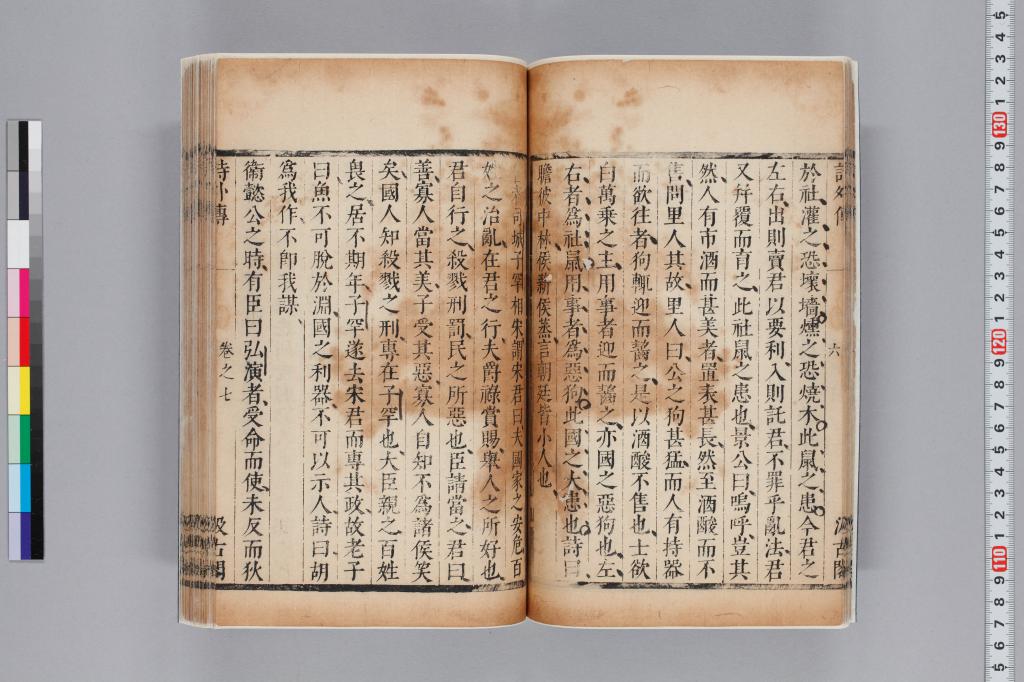 詩外傳
六
汲古閣
於社灌之恐壞墻燻之恐燒木此鼠之患今君之
左右出則賣君以要利入則託君不罪乎亂法君
又幷覆而育之此社鼠之患也景公曰嗚呼豈其
然人有市酒而甚美者置表甚長然至酒酸而不
售問里人其故里人曰公之狗甚猛而人有持器
而欲往者狗輒迎而齧之是以酒酸不售也士欲
白萬乘之主用事者迎而齧之亦國之惡狗也左
右者為社鼠用事者為惡狗此國之大患也詩曰
瞻彼中林侯薪侯蒸言朝廷皆小人也
司城子罕相宋謂宋君曰夫國家之安危百
姓之治亂在君之行夫爵祿賞賜舉人之所好也
君自行之殺戮刑罰民之所惡也臣請當之君曰
善寡人當其美子受其惡寡人自知不為諸侯笑
矣國人知殺戮之刑專在子罕也大臣親之百姓
畏之居不期年子罕遂去宋君而專其政故老子
曰魚不可脫於淵國之利器不可以示人詩曰胡
為我作不卽我謀
衞懿公之時有臣曰弘演者受命而使未反而狄
詩外傳
卷之七
汲古閣
5
4
3
2
1
130
9
8
7
6
5
4
3
2
1
120
9
8
7
6
5
4
3
2
1
110
9
8
7
6
5